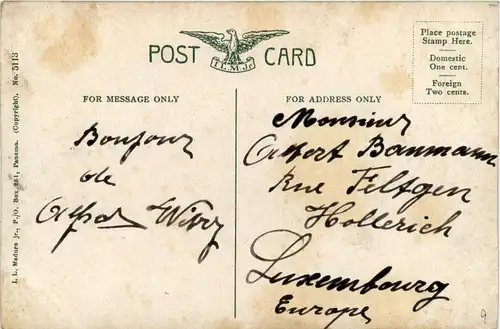 POST CARD
I.L.M.Jr.
Place postage
Stamp Here.
Domestic
One cent.
Foreign
Two cents.
FOR MESSAGE ONLY
FOR ADDRESS ONLY
Bonjour
de
Alfred
Monsieur
Albert Baumann
Rue Feltgen
Hollerich
Luxembourg
Europe
I. L. Maduro jr., P./O. Box 281, Panama. (Copyright), No. 5113
9